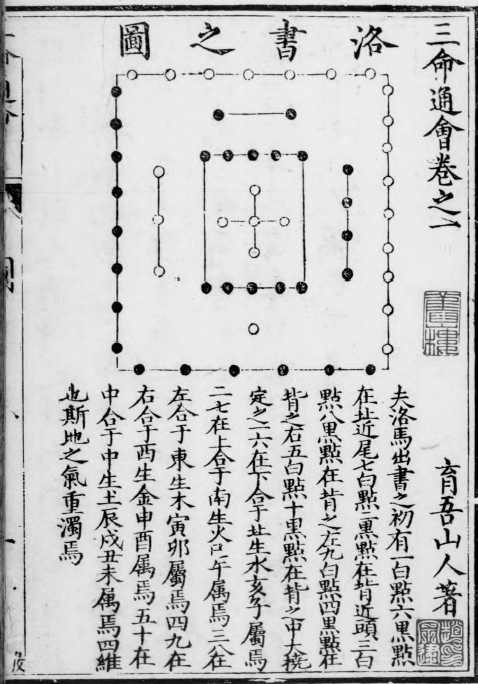 三命通會卷之一
育吾山人著
洛書之圖
夫洛馬出書之初有一白點六黒點
在北近尾七白點二黒點在背近頭三白
點八黒點在背之左九白點四黒點在
背之右五白點十黒點在背之中大撓
定之一六在下合于北生水亥子屬焉
二七在上合于南生火巳午属焉三八在
左合于東生木寅卯屬焉四九在
右合于西生金申酉属焉五十在
中合于中生土辰戌丑未属焉四維
也斯地之氣重濁焉